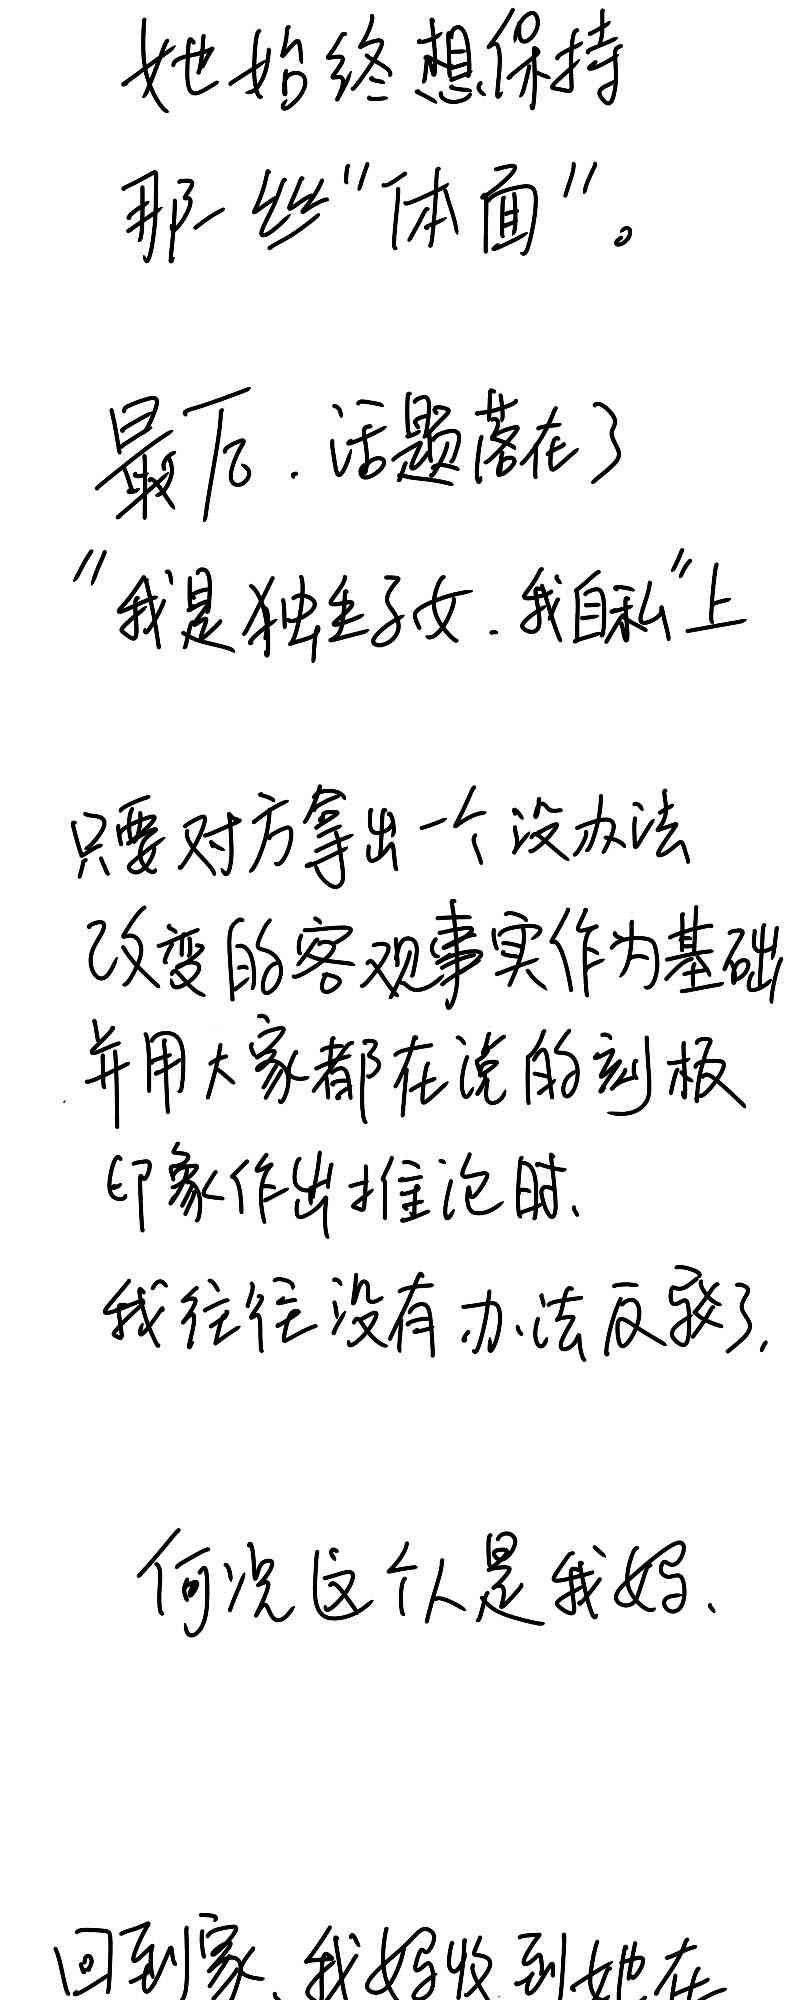 她始终想保持
那一丝"体面"。
最后.话题落在了
"我是独生子女.我自私"上
只要对方拿出一个没办法
改变的客观事实作为基础
并用大家都在说的刻板
印象作出推论时、
我往往没有办法反驳了,
何况这个人是我妈、
回到家、我妈收到她在